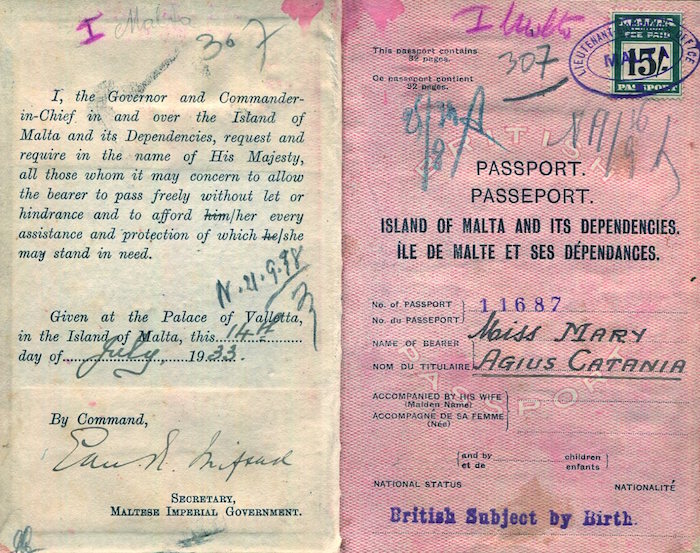 I Malta
307
I, the Governor and Commander-
in-Chief in and over the Island of
Malta and its Dependencies, request and
require in the name of His Majesty,
all those whom it may concern to allow
the bearer to pass freely without let or
hindrance and to afford him/her every
assistance and protection of which he/she
may stand in need.
N. 21.9.38
Given at the Palace of Valletta,
in the Island of Malta, this 14th
day of July, 1933.
By Command,
SECRETARY,
MALTESE IMPERIAL GOVERNMENT.
I Malta
307
This passport contains
32 pages.
Ce passeport contient
32 pages.
FEE PAID
15/-
PASSPORT
MALTA
BRITISH
PASSPORT.
PASSEPORT.
ISLAND OF MALTA AND ITS DEPENDENCIES.
ÎLE DE MALTE ET SES DÉPENDANCES.
No. of PASSPORT
No. du PASSEPORT
11687
NAME OF BEARER
NOM DU TITULAIRE
MISS MARY
AGIUS CATANIA
PASSPORT
ACCOMPANIED BY HIS WIFE
(Maiden Name)
ACCOMPAGNE DE SA FEMME
(Née)
and by children
et de enfants
NATIONAL STATUS NATIONALITÉ
British Subject by Birth.